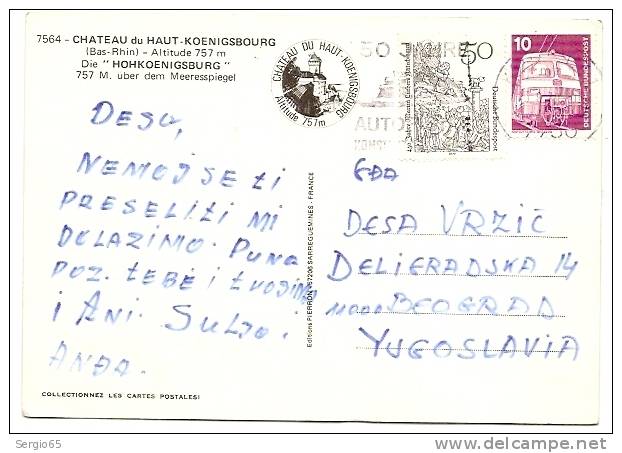 7564 - CHATEAU du HAUT-KOENIGSBOURG
(Bas-Rhin) - Altitude 757 m
Die " HOHKOENIGSBURG "
757 M. uber dem Meeresspiegel
CHATEAU DU HAUT-KOENIGSBOURG
Altitude 757m
50 JAHRE
AUTO
50
Deutsche Bundespost
10
DEUTSCHE BUNDESPOST
DESO,
NEMOJ SE TI
PRESELITI MI
DOLAZIMO. PUNO
POZ. TEBE I TVOJIMA
I ANI SULJO.
ANĐA.
Editions PIERRON - 57206 SARREGUEMINES - FRANCE
GĐA
DESA VRZIĆ
DELIGRADSKA 14
11000 BEOGRAD
YUGOSLAVIA
COLLECTIONNEZ LES CARTES POSTALES!
Sergio65
delcampe.net